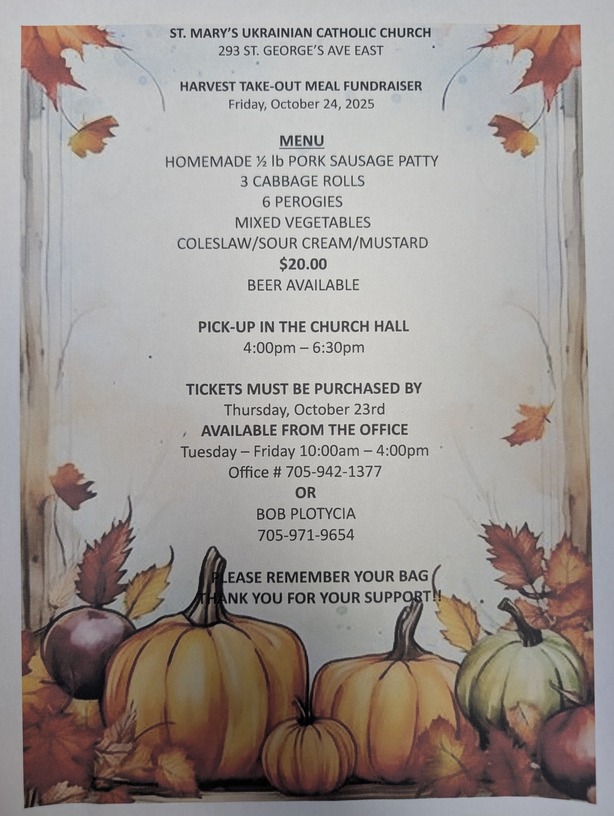 ST. MARY'S UKRAINIAN CATHOLIC CHURCH
293 ST. GEORGE'S AVE EAST
HARVEST TAKE-OUT MEAL FUNDRAISER
Friday, October 24, 2025
MENU
HOMEMADE ½ lb PORK SAUSAGE PATTY
3 CABBAGE ROLLS
6 PEROGIES
MIXED VEGETABLES
COLESLAW/SOUR CREAM/MUSTARD
$20.00
BEER AVAILABLE
PICK-UP IN THE CHURCH HALL
4:00pm – 6:30pm
TICKETS MUST BE PURCHASED BY
Thursday, October 23rd
AVAILABLE FROM THE OFFICE
Tuesday – Friday 10:00am – 4:00pm
Office # 705-942-1377
OR
BOB PLOTYCIA
705-971-9654
PLEASE REMEMBER YOUR BAG
THANK YOU FOR YOUR SUPPORT!!